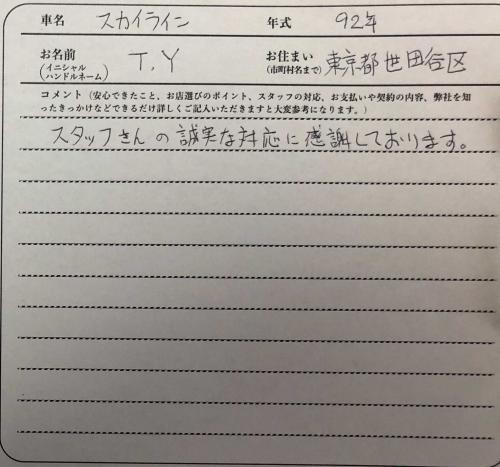 車名 スカイライン 年式 92年
お名前 (イニシャル ハンドルネーム) T.Y お住まい (市町村名まで) 東京都世田谷区
コメント（安心できたこと、お店選びのポイント、スタッフの対応、お支払いや契約の内容、弊社を知
ったきっかけなどできるだけ詳しくご記入いただきますと大変参考になります。）
スタッフさんの誠実な対応に感謝しております。